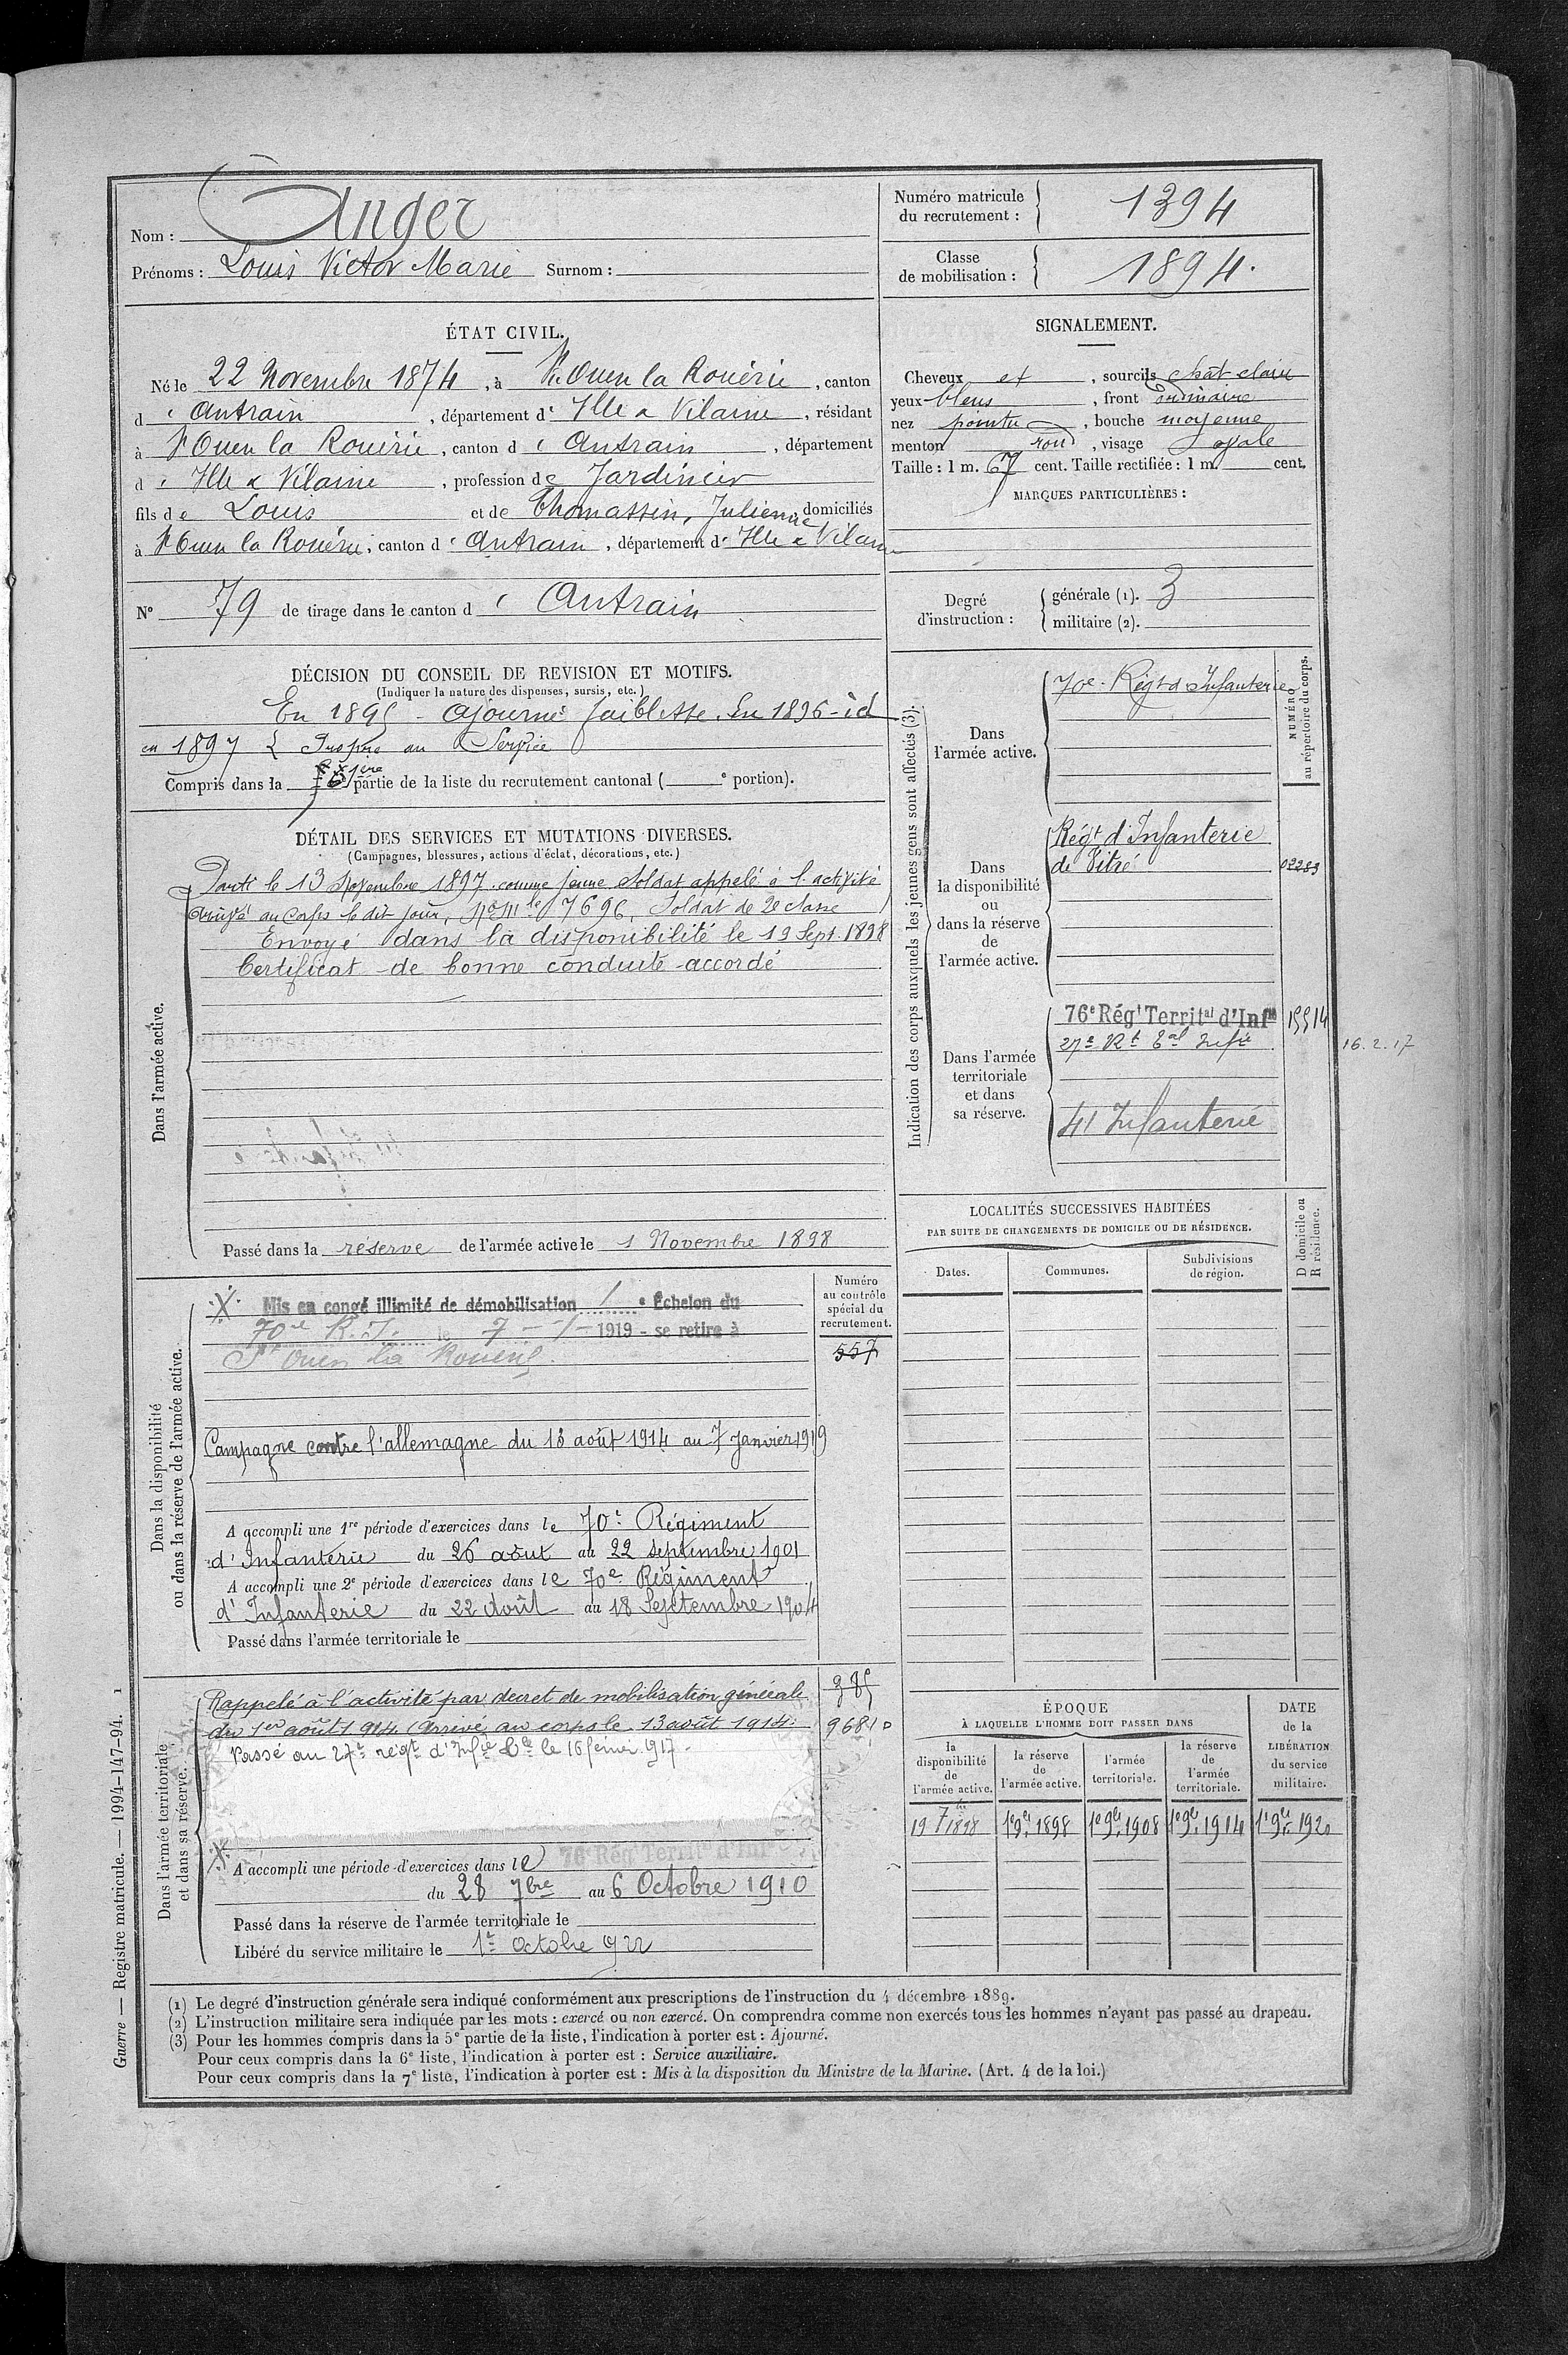 Nom : Anger
Prénoms : Louis Victor Marie Surnom :
Numéro matricule du recrutement : 1394
Classe de mobilisation : 1894.
ÉTAT CIVIL.
Né le 22 Novembre 1874, à St. Ouen la Rouërie, canton
d'Antrain, département d'Ille & Vilaine, résidant
à St Ouen la Rouërie, canton d'Antrain, département
d'Ille & Vilaine, profession de Jardinier
fils de Louis et de Thomassin, Julienne domiciliés
à St Ouen la Rouërie, canton d'Antrain, département d'Ille & Vilaine
N° 79 de tirage dans le canton d'Antrain
SIGNALEMENT.
Cheveux et, sourcils chât clair
yeux bleus, front ordinaire
nez pointu, bouche moyenne
menton rond, visage ovale
Taille : 1 m. 67 cent. Taille rectifiée : 1 m. cent.
MARQUES PARTICULIÈRES :
Degré d'instruction :
générale (1). 3
militaire (2).
DÉCISION DU CONSEIL DE REVISION ET MOTIFS.
(Indiquer la nature des dispenses, sursis, etc.)
En 1895 - ajourné faiblesse. En 1896 - id
en 1897 Propre au Service
Compris dans la 1ère partie de la liste du recrutement cantonal ( e portion).
DÉTAIL DES SERVICES ET MUTATIONS DIVERSES.
(Campagnes, blessures, actions d'éclat, décorations, etc.)
Dans l'armée active.
Parti le 13 Novembre 1897 comme jeune soldat appelé à l'activité
Arrivé au corps le dit jour, No Mle 7696, Soldat de 2e classe
Envoyé dans la disponibilité le 19 Sept. 1898
Certificat de bonne conduite accordé
Passé dans la réserve de l'armée active le 1 Novembre 1898
Indication des corps auxquels les jeunes gens sont affectés (3).
NUMÉRO au répertoire du corps.
Dans l'armée active.
70e Régt d'Infanterie
Dans la disponibilité ou dans la réserve de l'armée active.
Régt d'Infanterie
de Vitré 02283
Dans l'armée territoriale et dans sa réserve.
76e Régt Territal d'Infie 15514
27e Rt Tal Infie 16.2.17
41 Infanterie
LOCALITÉS SUCCESSIVES HABITÉES
PAR SUITE DE CHANGEMENTS DE DOMICILE OU DE RÉSIDENCE.
Dates. Communes. Subdivisions de région. D domicile ou R résidence.
Dans la disponibilité ou dans la réserve de l'armée active.
Numéro au contrôle spécial du recrutement.
557
Mis en congé illimité de démobilisation 1 e Échelon du
70e R.I. le 7 - 1 - 1919 - se retire à
St Ouen la Rouërie
Campagne contre l'allemagne du 13 août 1914 au 7 Janvier 1919
A accompli une 1re période d'exercices dans le 70e Régiment
d'Infanterie du 26 août au 22 septembre 1901
A accompli une 2e période d'exercices dans le 70e Régiment
d'Infanterie du 22 Août au 18 Septembre 1904
Passé dans l'armée territoriale le
Dans l'armée territoriale et dans sa réserve.
Rappelé à l'activité par décret de mobilisation générale
du 1er août 1914. Arrivé au corps le 13 août 1914.
Passé au 27e régt d'Infie Tle le 16 février 917.
A accompli une période d'exercices dans le 76e Rég Territ d'Inf
du 28 7bre au 6 Octobre 1910
Passé dans la réserve de l'armée territoriale le
Libéré du service militaire le 1er Octobre 922
ÉPOQUE
À LAQUELLE L'HOMME DOIT PASSER DANS
DATE de la LIBÉRATION du service militaire.
la disponibilité de l'armée active. la réserve de l'armée active. l'armée territoriale. la réserve de l'armée territoriale.
19 7bre 1898 1er 9bre 1898 1er 9bre 1908 1er 9bre 1914 1er 9bre 1920
(1) Le degré d'instruction générale sera indiqué conformément aux prescriptions de l'instruction du 4 décembre 1889.
(2) L'instruction militaire sera indiquée par les mots : exercé ou non exercé. On comprendra comme non exercés tous les hommes n'ayant pas passé au drapeau.
(3) Pour les hommes compris dans la 5e partie de la liste, l'indication à porter est : Ajourné.
Pour ceux compris dans la 6e liste, l'indication à porter est : Service auxiliaire.
Pour ceux compris dans la 7e liste, l'indication à porter est : Mis à la disposition du Ministre de la Marine. (Art. 4 de la loi.)
Guerre — Registre matricule. — 1994-147-94. 1